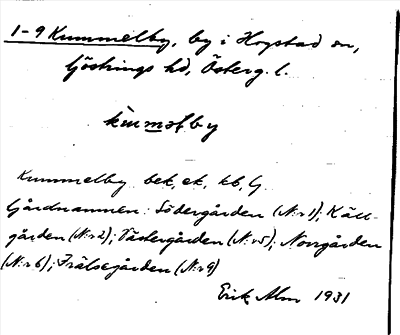 1-9 Kummelby, by i Hogstad sn,
Göstrings hd, Österg. l.
kùmǝlby
Kummelby bek, ek, kb, G
Gårdnamnen: Södergården (N:r 1); Käll-
gården (N:r 2); Västergården (N:r 5); Norrgården
(N:r 6); Frälsegården (N:r 9)
Erik Alm 1931